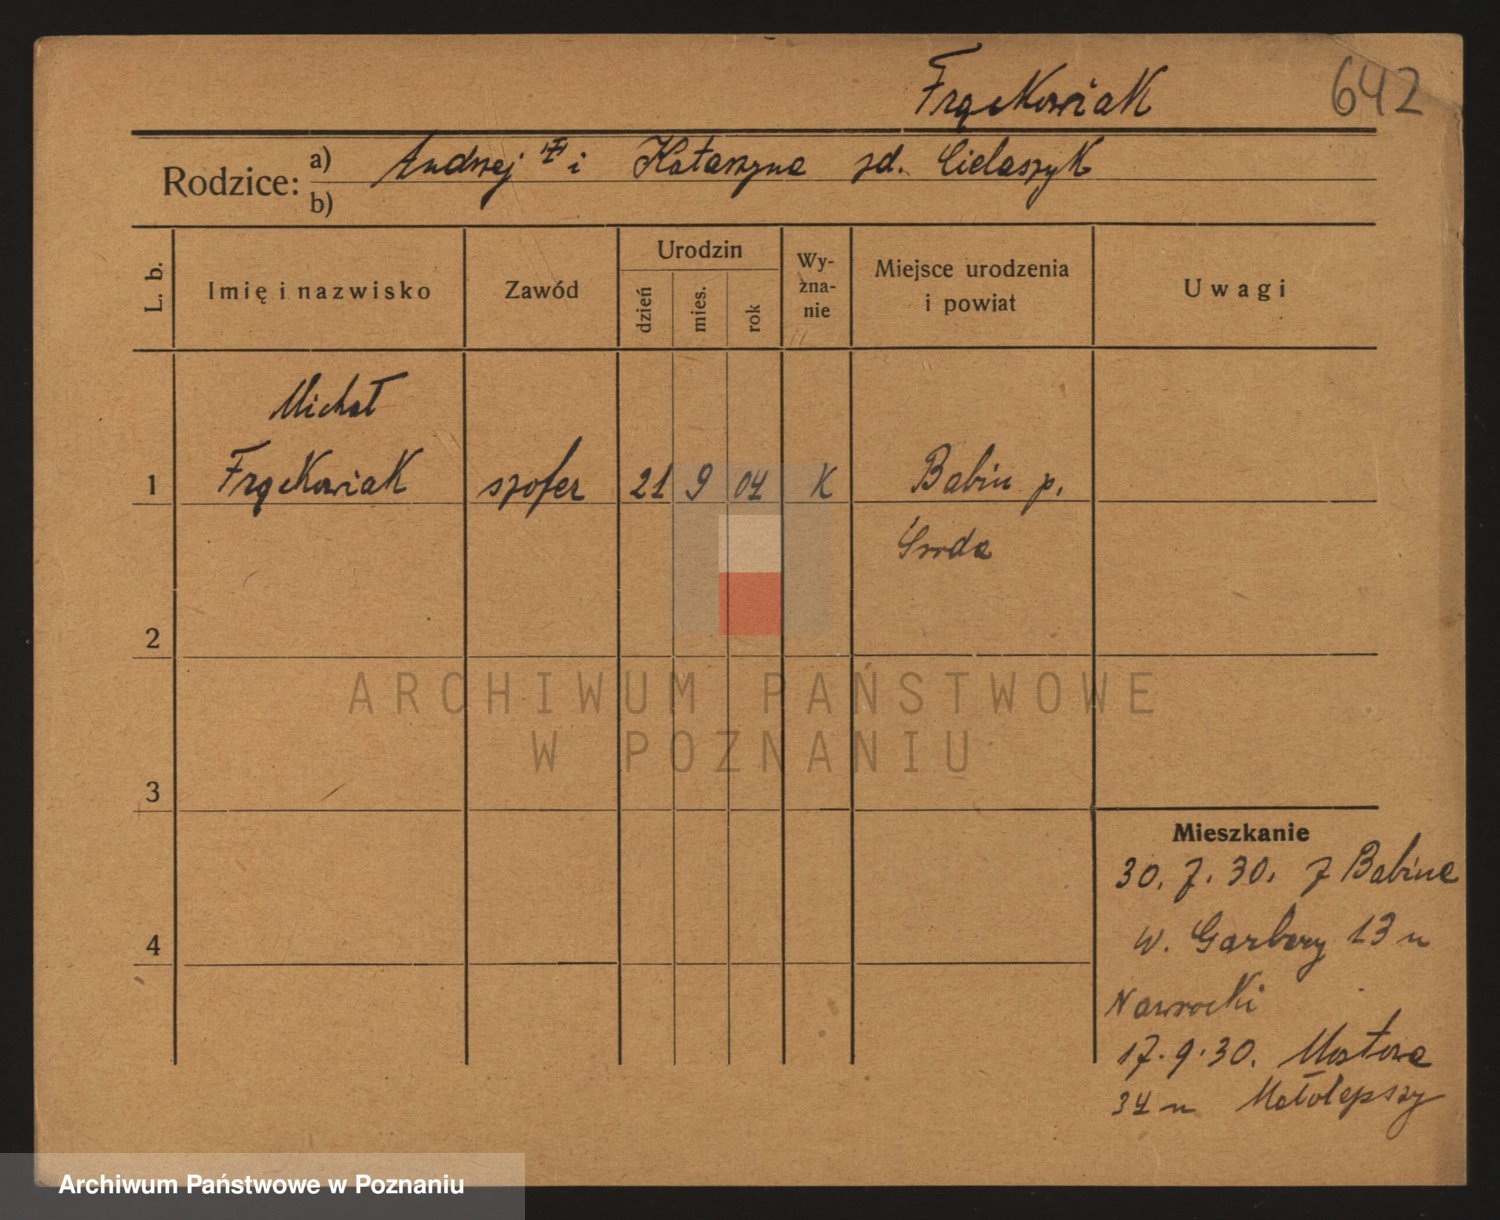 Frąckowiak 642
Rodzice: a) Andrzej i Katarzyna zd. Cielaszyk
b)
L. b. Imię i nazwisko Zawód Urodzin dzień mies. rok Wy-zna-nie Miejsce urodzenia i powiat Uwagi
Michał
1 Frąckowiak szofer 21 9 04 K Babin p.
Środa
2
ARCHIWUM PAŃSTWOWE
W POZNANIU
3
Mieszkanie
30. 7. 30. z Babina
4 w. Garbary 13 u
Nawrocki
17. 9. 30. Mostowa
34 u Małolepszy
Archiwum Państwowe w Poznaniu